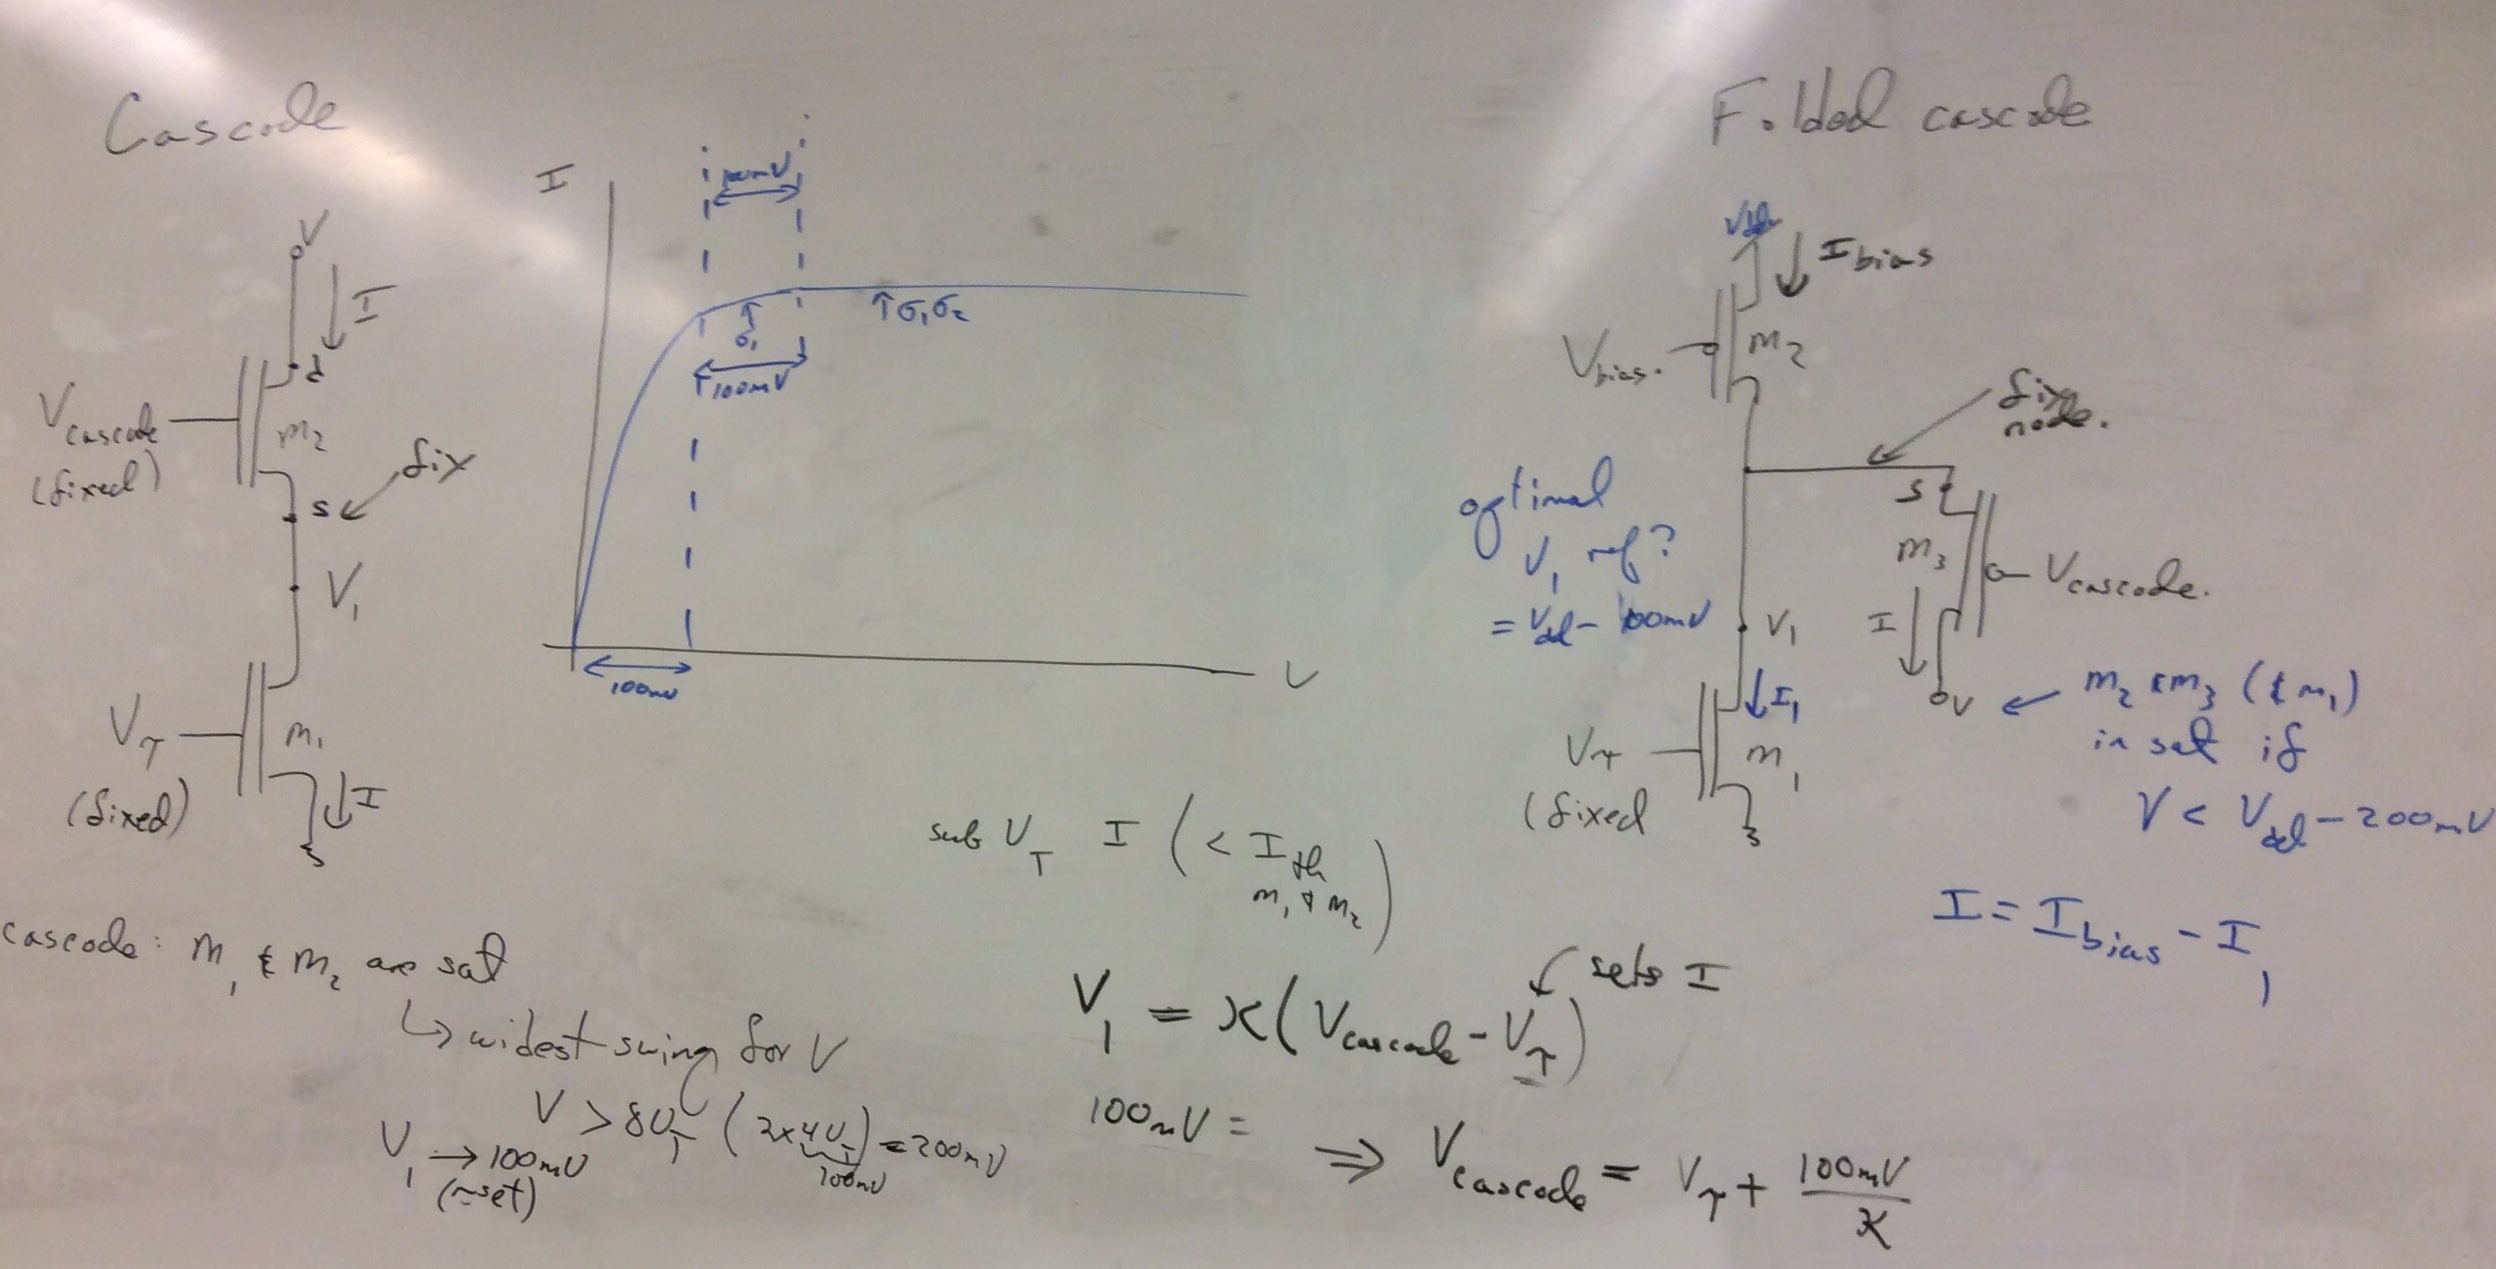 Cascode
V
I
d
Vcascode
(fixed)
m2
fix
s
V1
Vτ
(fixed)
m1
I
I
100mV
↑σ1σ2
↑
σ1
100mV
100mV
V
Folded cascode
Vdd
Ibias
Vbias.
m2
fix
node.
s
m3
Vcascode.
I
V
optimal
V1 ref?
= Vdd - 100mV
V1
I1
Vτ
(fixed
m1
m2 & m3 (& m1)
in sat if
V < Vdd - 200mV
I = Ibias - I1
sub VT I (< Ith
m1 & m2)
cascode: m1 & m2 are sat
↳ widest swing for V
V > 8UT (2x4UT) = 200mV
100mV
V1 → 100mV
sets I
V1 = κ(Vcascode - Vτ)
100mV =
⇒ Vcascode = Vτ + 100mV/κ